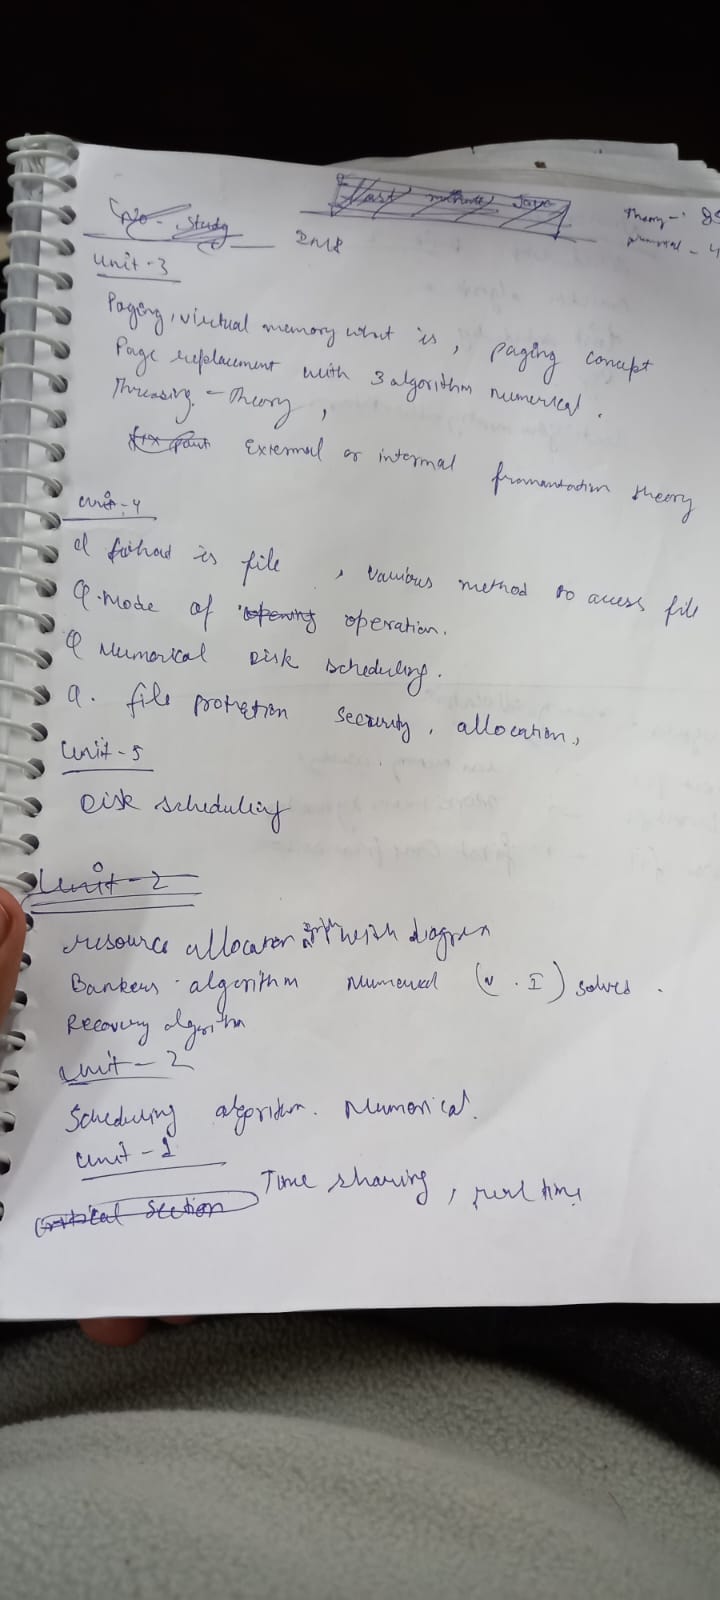 Study
2018
Theory - 80
unit - 3
Paging, virtual memory what is, paging concept
Page replacement with 3 algorithm numerical.
Thressing - Theory,
External or internal framantation theory
unit - 4
is file, various method to access file
Q. Mode of opening operation.
Q Numerical Disk scheduling.
Q. file protetion security, allocation,
Unit - 5
Disk scheduling
Unit - 2
resource allocation with diagram
Bankers algorithm Numerical (V.I) solves.
Recovery algorithm
unit - 2
Scheduling algorithm. Numerical.
unit - 1
Time sharing, real time
Critical Section